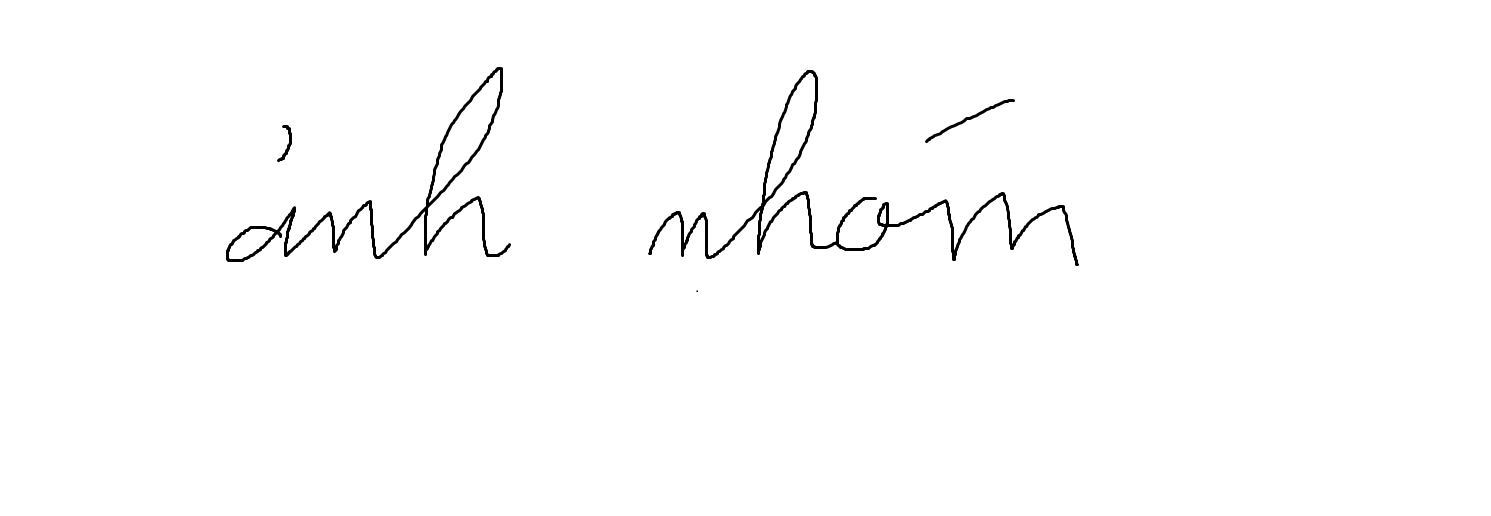 ảnh nhóm